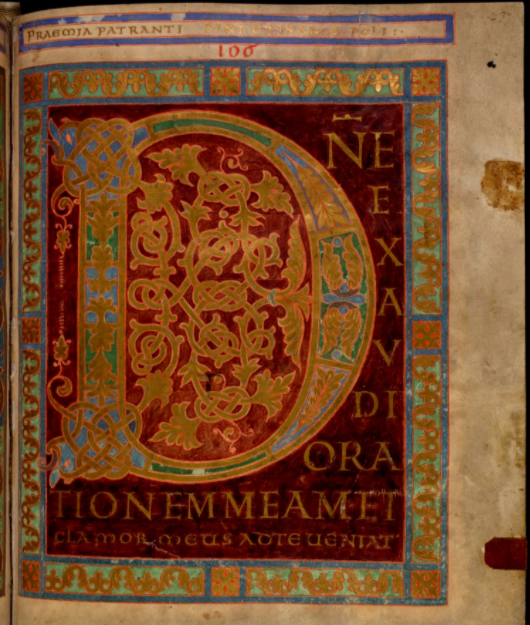 PRAEMIA PATRANTI
106
D
N̄E
E
X
A
V
DI
ORA
TIONEMMEAMET
CLAMOR MEUS ADTE UENIAT